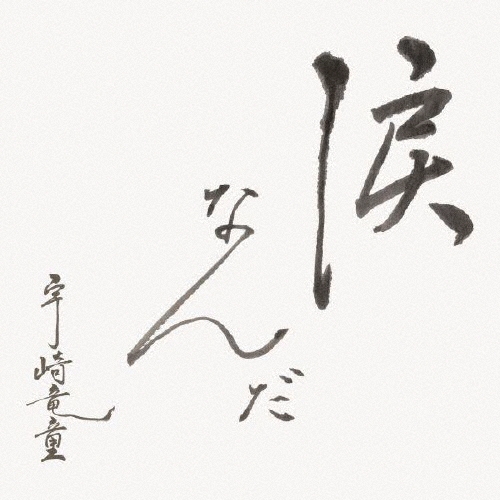 涙
なんだ
宇崎竜童